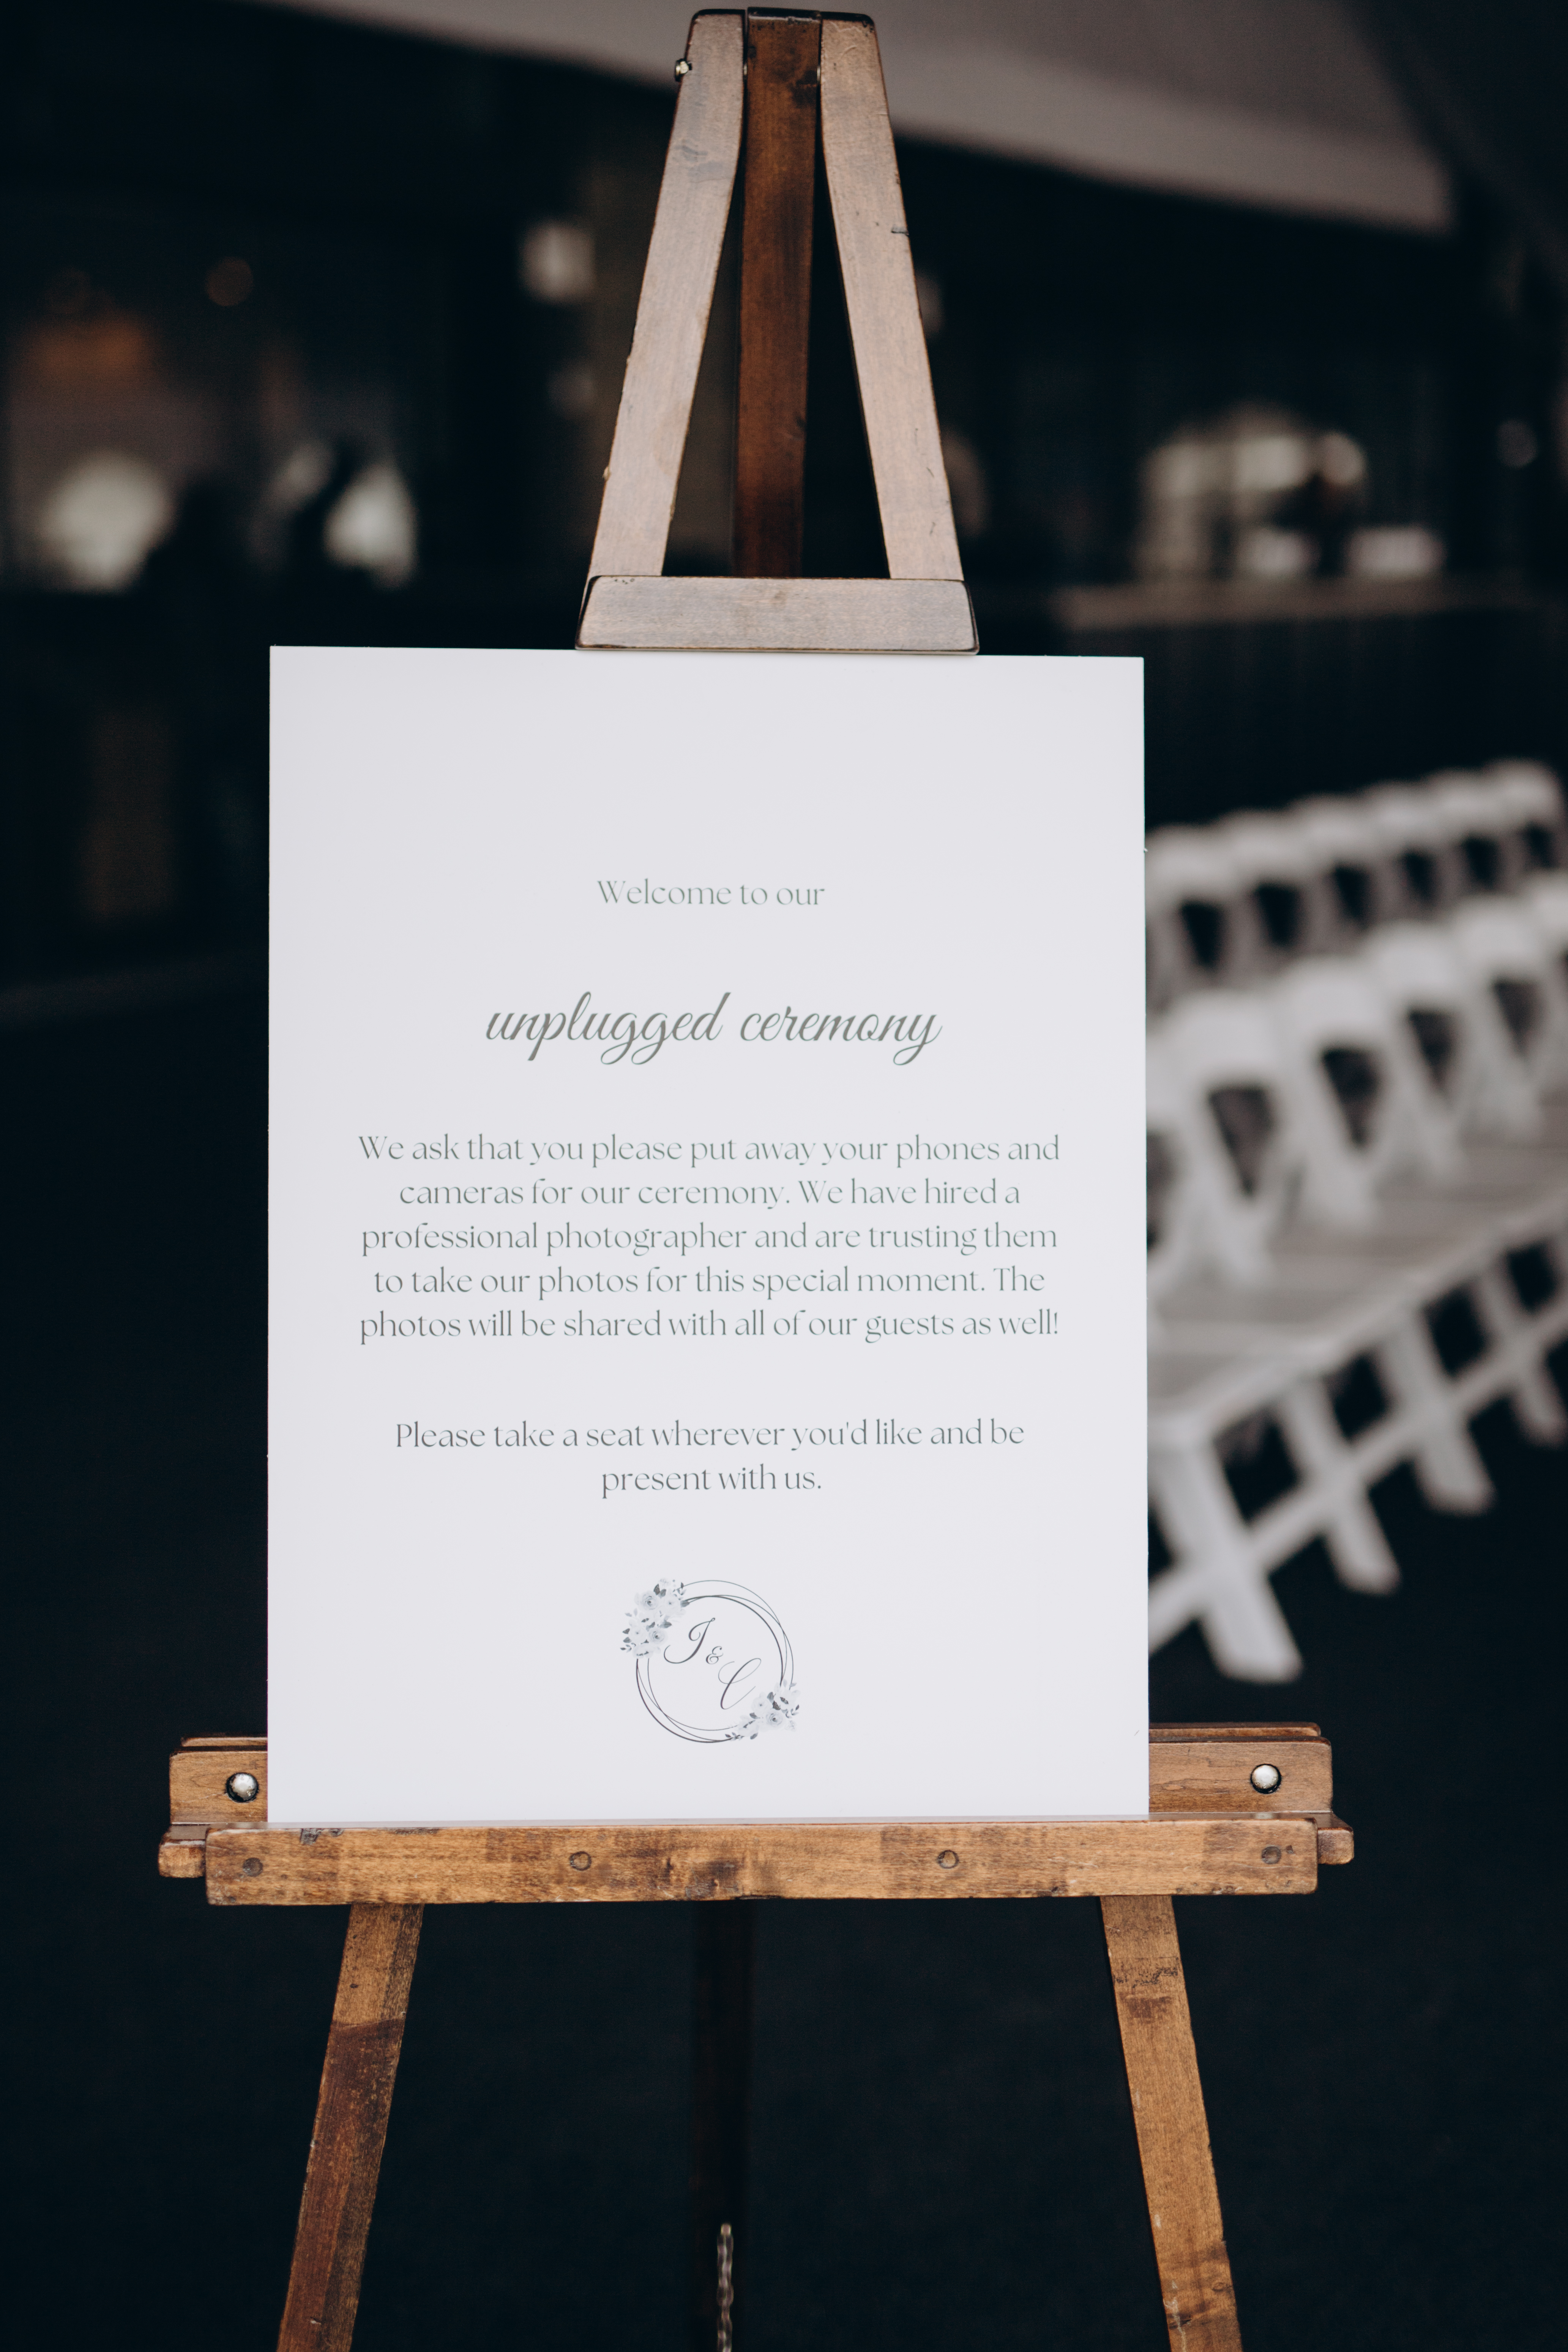 Welcome to our
unplugged ceremony
We ask that you please put away your phones and
cameras for our ceremony. We have hired a
professional photographer and are trusting them
to take our photos for this special moment. The
photos will be shared with all of our guests as well!
Please take a seat wherever you'd like and be
present with us.
J & C